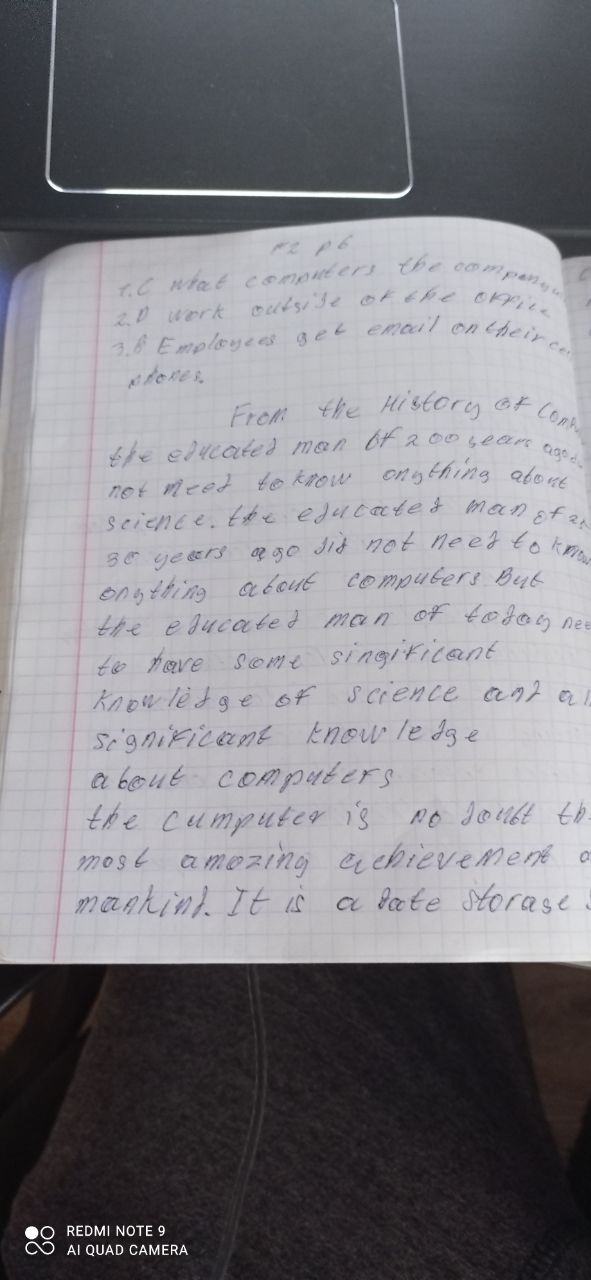 №2 p 6
1. C what computers the
2. D work outside of the office
3. B Employees get email on their
phones.
From the History of
the educated man of 200 years ago
not need to know anything about
science. the educated man of
30 years ago did not need to know
anything about computers But
the educated man of today
to have some singificant
knowledge of science and
significant knowledge
about computers
the cumputer is no doubt
most amazing achievement
mankind. It is a date storage
REDMI NOTE 9
AI QUAD CAMERA